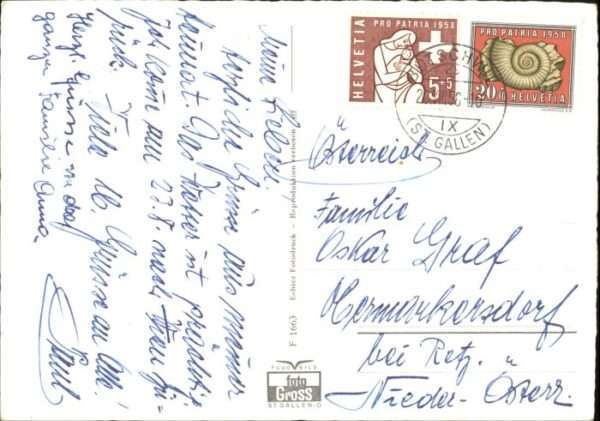 Meine Lieben!
Herzliche Grüsse aus meiner
Heimat. Das Wetter ist prächtig.
Ich kann am 27.8. nach
zück. Viele lb. Grüsse an Alle!
Paul
Herzl. Grüsse an das
ganze Familie Anna
HELVETIA
PRO PATRIA 1958
5+5
PRO PATRIA 1958
20
HELVETIA
IX
(ST. GALLEN)
Österreich
Familie
Oskar Graf
Hermarkersdorf
bei Retz.
Nieder-Österr.
F 1663 Echter Fotodruck - Reproduktion verboten
foto
Gross
ST. GALLEN-O